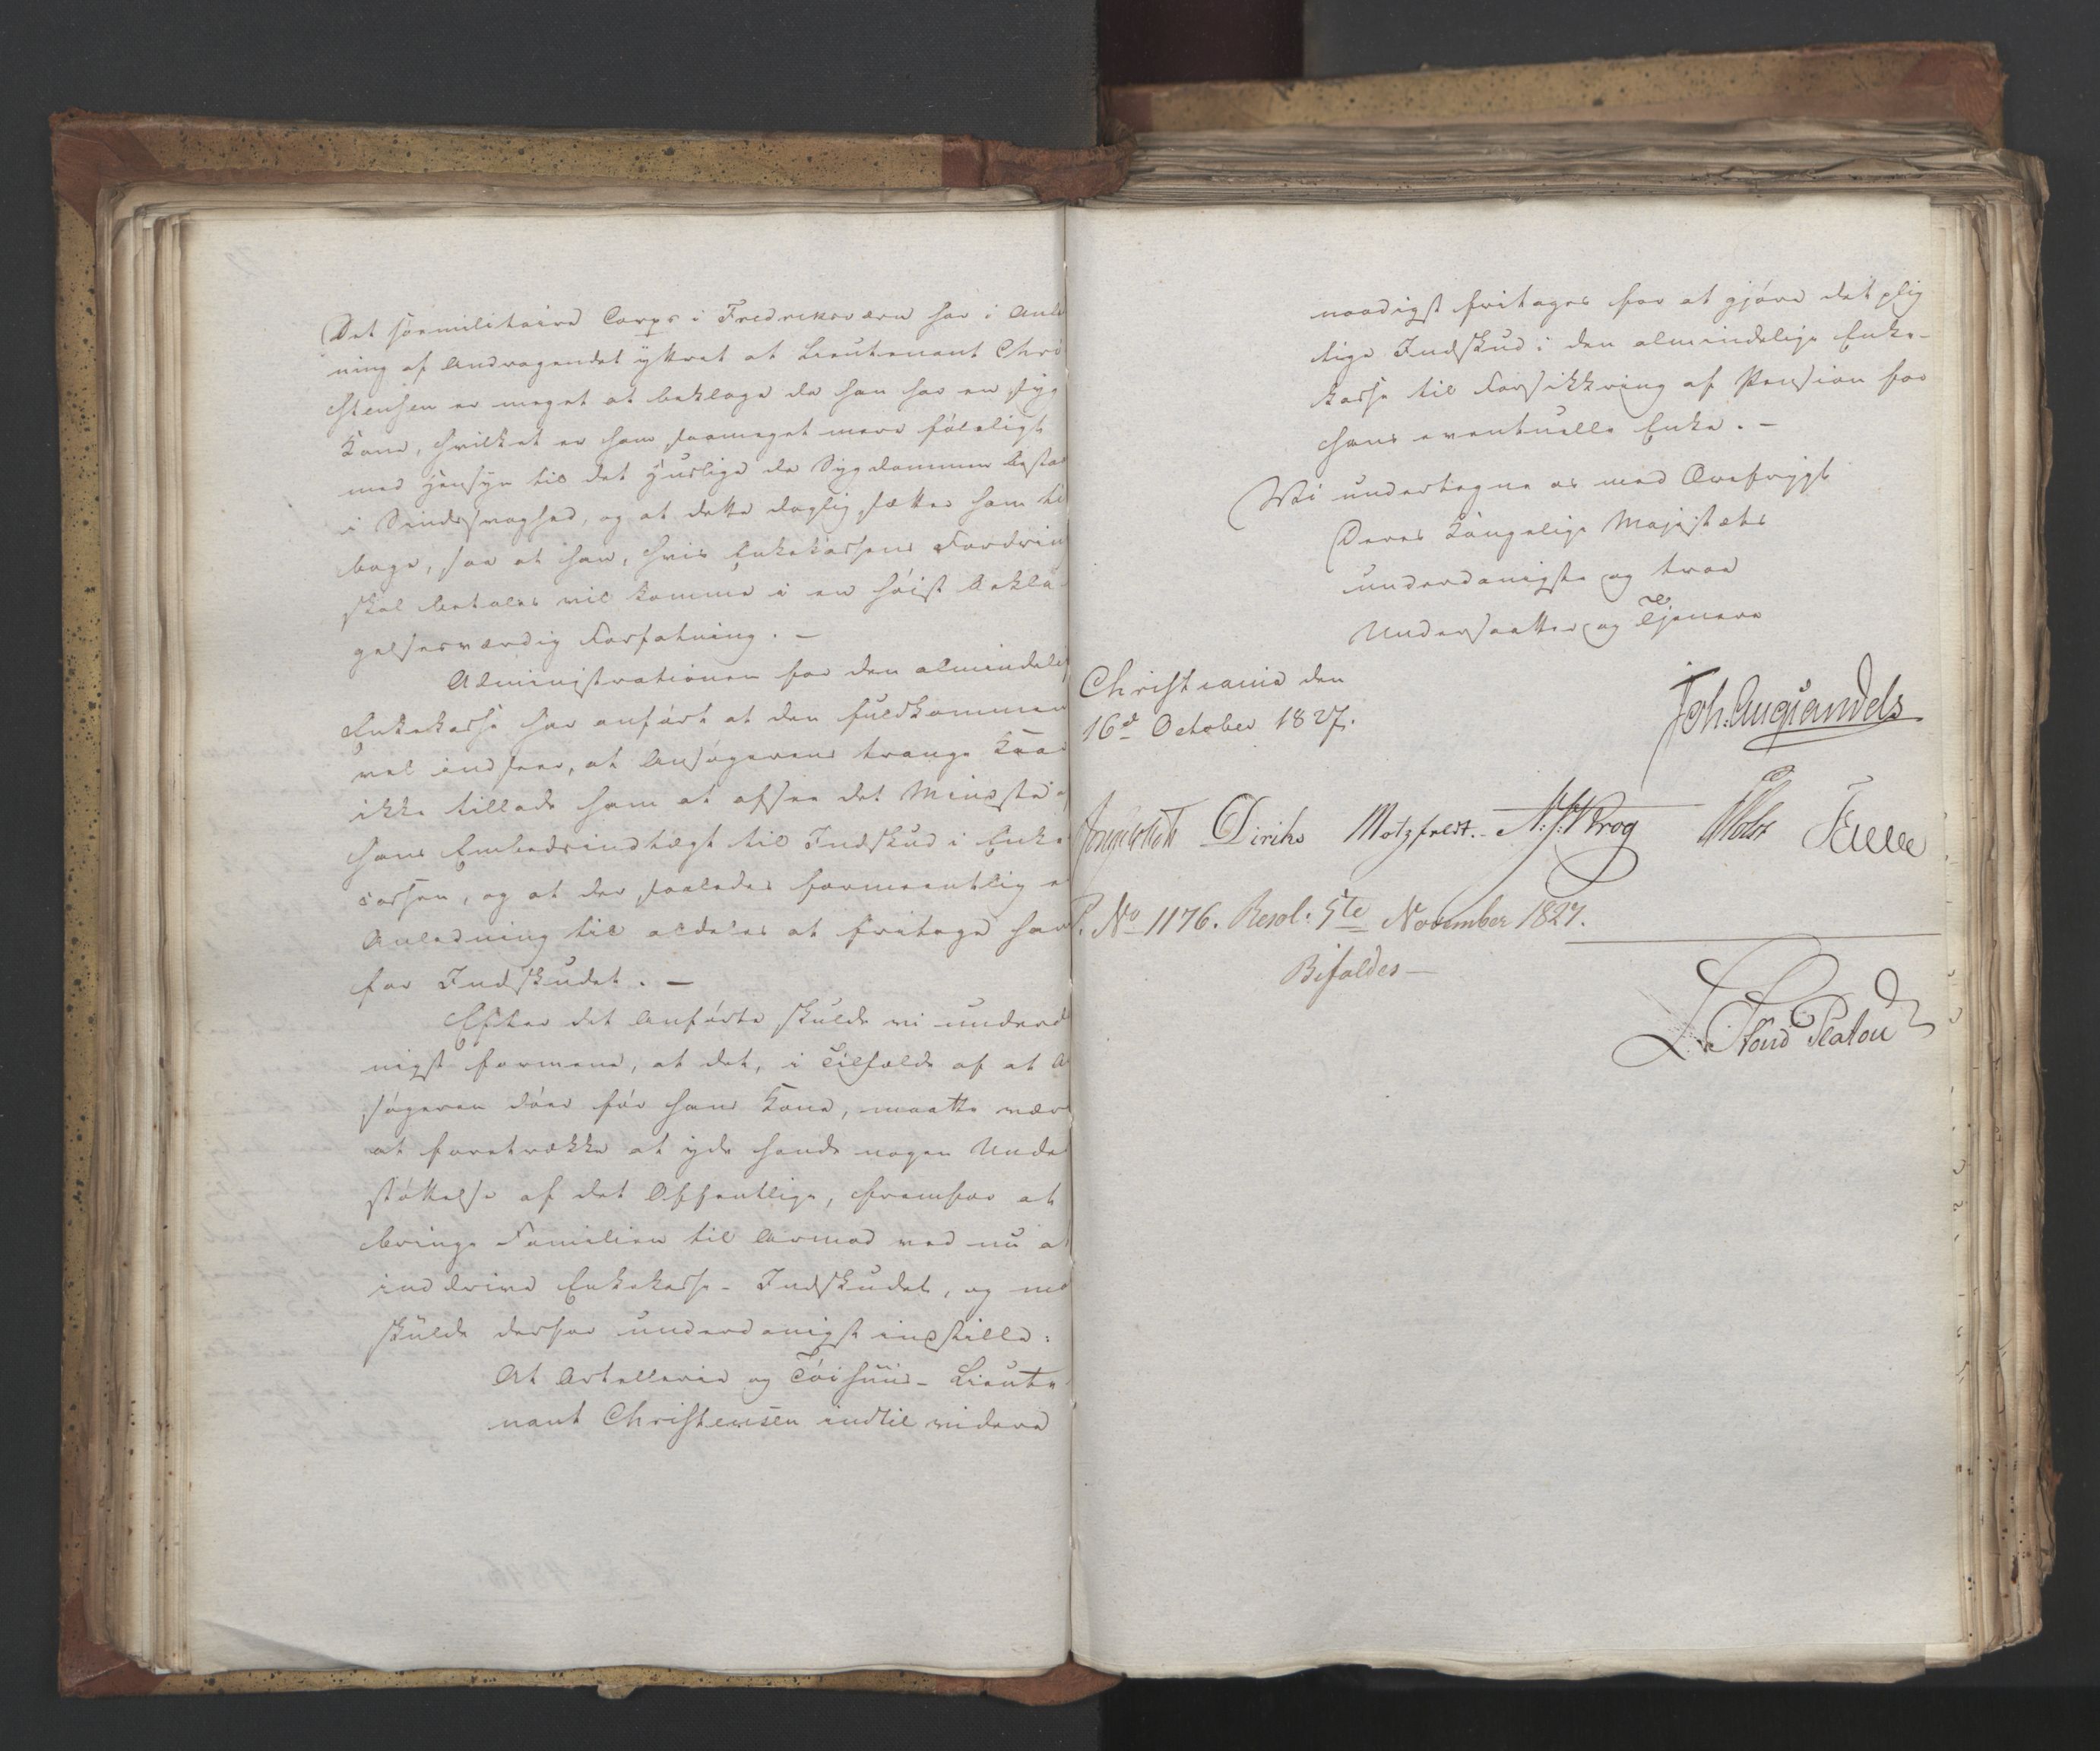 Det søemilitaire Corps i Fredriksværn har i Anle
ning af Andragendet yttret at Lieutenant Chri
stensen er meget at beklage da han har en syg
Kone, hvilket er ham saameget mere føleligt
med Hensyn til det Huuslige da Sygdommen bestaa
i Sindssvaghed, og at dette daglig sætter ham til
bage, saa at han, hvis Enkekassens Fordrin
skal betales vil komme i en høist bekla
gelsesværdig Forfatning. -
Administrationen for den almindeli
Enkekasse har anført at den fuldkommen
vel indseer, at Ansøgerens trange Kaar
ikke tillade ham at afsee det Mindste af
hans Embedsindtægt til Indskud i Enke
cassen, og at der saaledes formeentlig e
Anledning til aldeles at fritage ham
for Indskudet. -
Efter det Anførte skulde vi underd
nigst formene, at det, i Tilfælde af at A
søgeren døer før hans Kone, maatte vær
at foretrække at yde hende nogen Unde
støttelse af det Offentlige, fremfor at
bringe Familien til Armod ved nu at
inddrive Enkekasse-Indskudet, og ma
skulde derfor underdanigst indstille:
At Artellerie og Tøihuus-Lieute
nant Christensen indtil videre
naadigst fritages for at gjøre det plig
tige Indskud i den almindelige Enke-
kasse til Forsikkring af Pension for
hans eventuelle Enke. -
Vi undertegne os med Ærefrygt
Deres Kongelige Majestæts
underdanigste og troe
Undersaatter og Tjenere
Christiania den
16d October 1827.
Joh. Aug Sandels
Diriks Motzfeldt. N. J. Krog
P. No 1176. Resol: 5te November 1827.
Bifaldes -
L. Stoud Platou